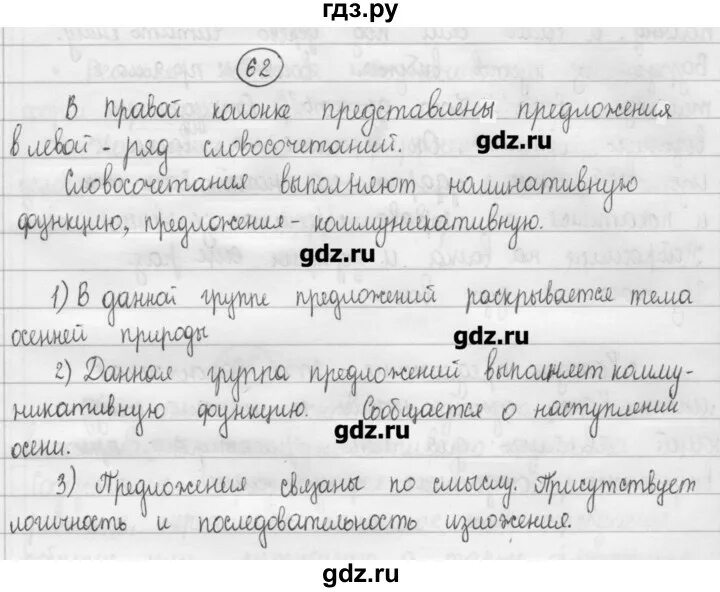 гдз.ру
62
В правой колонке представлены предложения
в левой - ряд словосочетаний.
gdz.ru
Словосочетания выполняют номинативную
функцию, предложения - коммуникативную.
gdz.ru
1) В данной группе предложений раскрывается тема
осенней природы
gdz.ru
2) Данная группа предложений выполняет комму-
никативную функцию. Сообщается о наступлений
gdz.ru
осени.
3) Предложения связаны по смыслу. Присутствует
gdz.ru
логичность и последовательность изложения.
gdz.ru